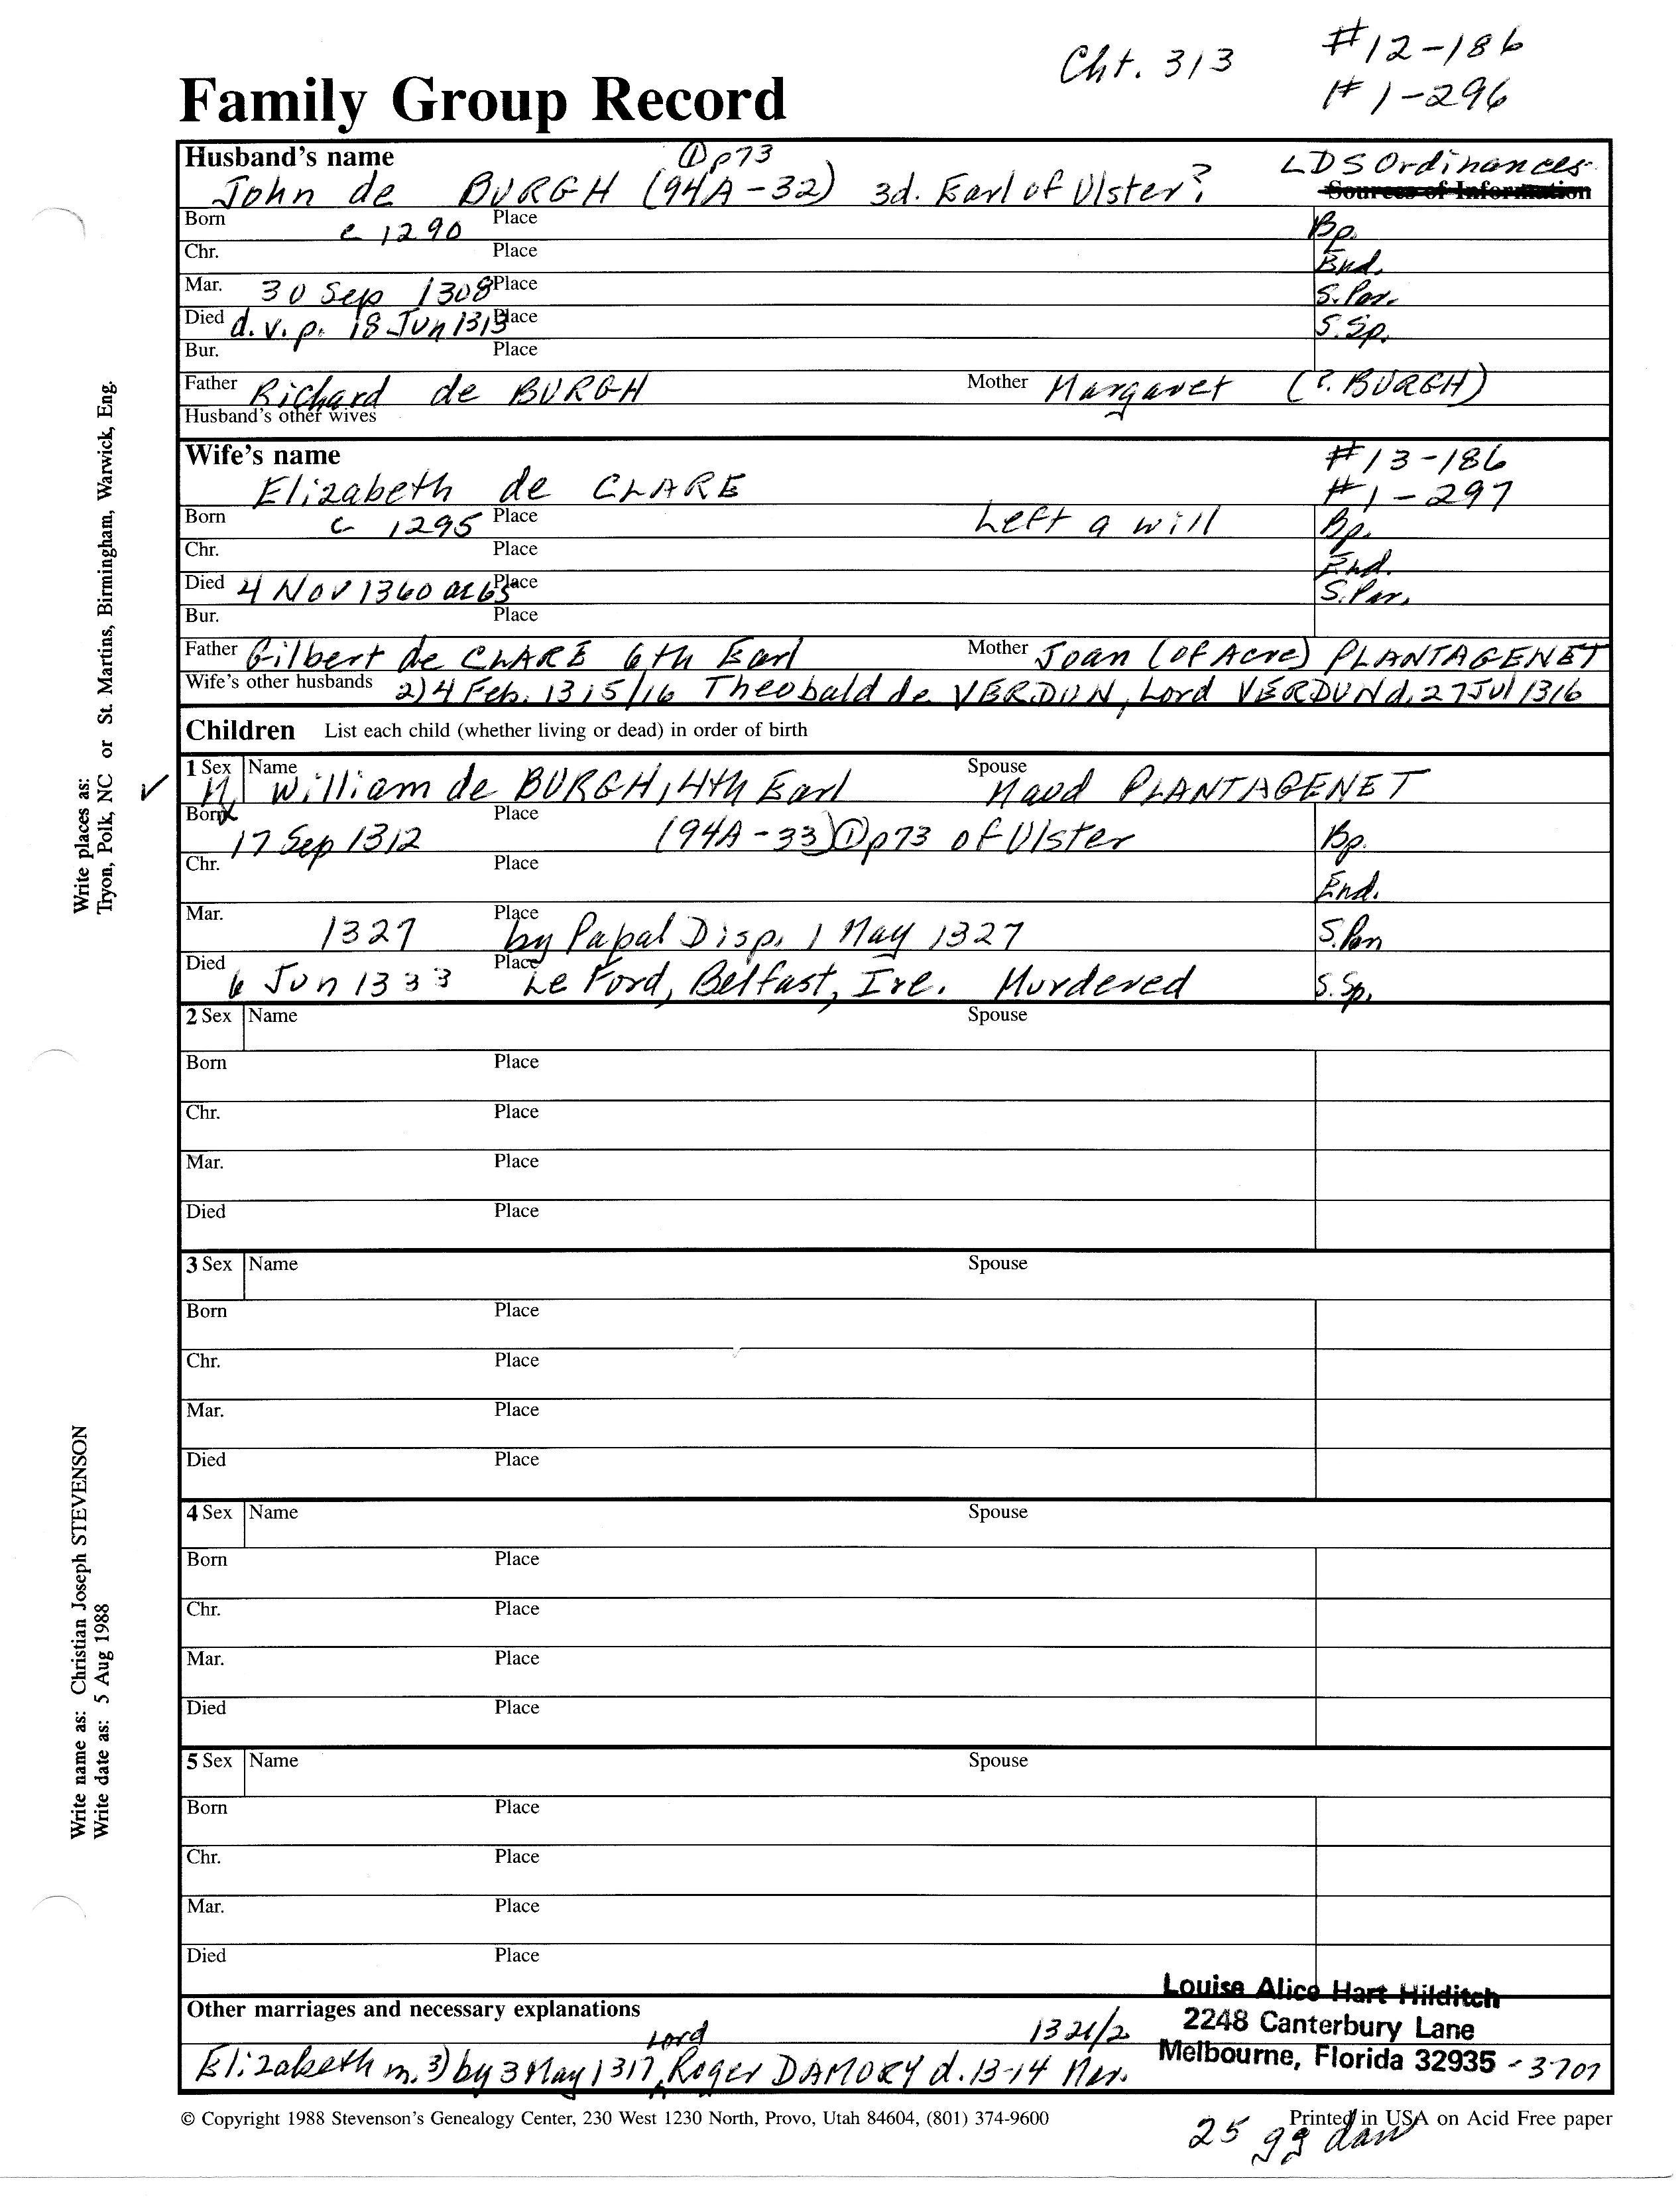 Cht. 313 #12-186
#1-296
Family Group Record
Husband's name ① p73 LDS Ordinances
John de BURGH (94A-32) 3d. Earl of Ulster? Sources of Information
Born c 1290 Place Bp.
Chr. Place End.
Mar. 30 Sep 1308 Place S. Par.
Died d.v.p. 18 Jun 1313 Place S. Sp.
Bur. Place
Father Richard de BURGH Mother Margaret (?. BURGH)
Husband's other wives
Wife's name #13-186
Elizabeth de CLARE #1-297
Born c 1295 Place Left a will Bp.
Chr. Place End.
Died 4 Nov 1360 ae 65 Place S. Par.
Bur. Place
Father Gilbert de CLARE 6th Earl Mother Joan (of Acre) PLANTAGENET
Wife's other husbands 2) 4 Feb. 1315/16 Theobald de VERDUN, Lord VERDUN d. 27 Jul 1316
Children List each child (whether living or dead) in order of birth
1 Sex Name Spouse
✓ M William de BURGH, 4th Earl Maud PLANTAGENET
Born X Place
17 Sep 1312 (94A-33) ① p73 of Ulster Bp.
Chr. Place End.
Mar. Place
1327 by Papal Disp. 1 May 1327 S. Par
Died Place
6 Jun 1333 Le Ford, Belfast, Ire. Murdered S. Sp.
2 Sex Name Spouse
Born Place
Chr. Place
Mar. Place
Died Place
3 Sex Name Spouse
Born Place
Chr. Place
Mar. Place
Died Place
4 Sex Name Spouse
Born Place
Chr. Place
Mar. Place
Died Place
5 Sex Name Spouse
Born Place
Chr. Place
Mar. Place
Died Place
Louise Alice Hart Hilditch
2248 Canterbury Lane
Melbourne, Florida 32935 - 3707
Other marriages and necessary explanations
Lord 1321/2
Elizabeth m. 3) by 3 May 1317, Roger DAMORY d. 13-14 Mar.
© Copyright 1988 Stevenson's Genealogy Center, 230 West 1230 North, Provo, Utah 84604, (801) 374-9600 Printed in USA on Acid Free paper
25 gg dau
Write places as:
Tryon, Polk, NC or St. Martins, Birmingham, Warwick, Eng.
Write name as: Christian Joseph STEVENSON
Write date as: 5 Aug 1988